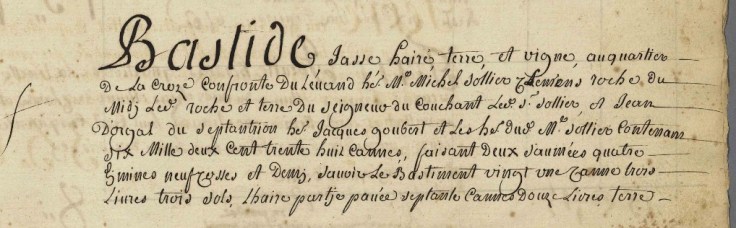 Bastide Jasse haire terre, et vigne, au quartier
De La Croze Confronte Du Levand hs. Mr. Michel Sollier Clemens roche du
Midj Led. roche et terre Du Seigneur du Couchant Led. Sr. Sollier, et Jean
Dorgal du septantrion hs. Jacques goubert et Les hs. dud. Mr. Sollier Contenam
six Mille deux Cent trente huit Cannes, faisant Deux saumées quatre
Emines neuf cesses et Demj, savoir Le Bastiment vingt une Canne trois
Livres trois sols, Lhaire partje pavée septante Cannes Douze Livres, terre